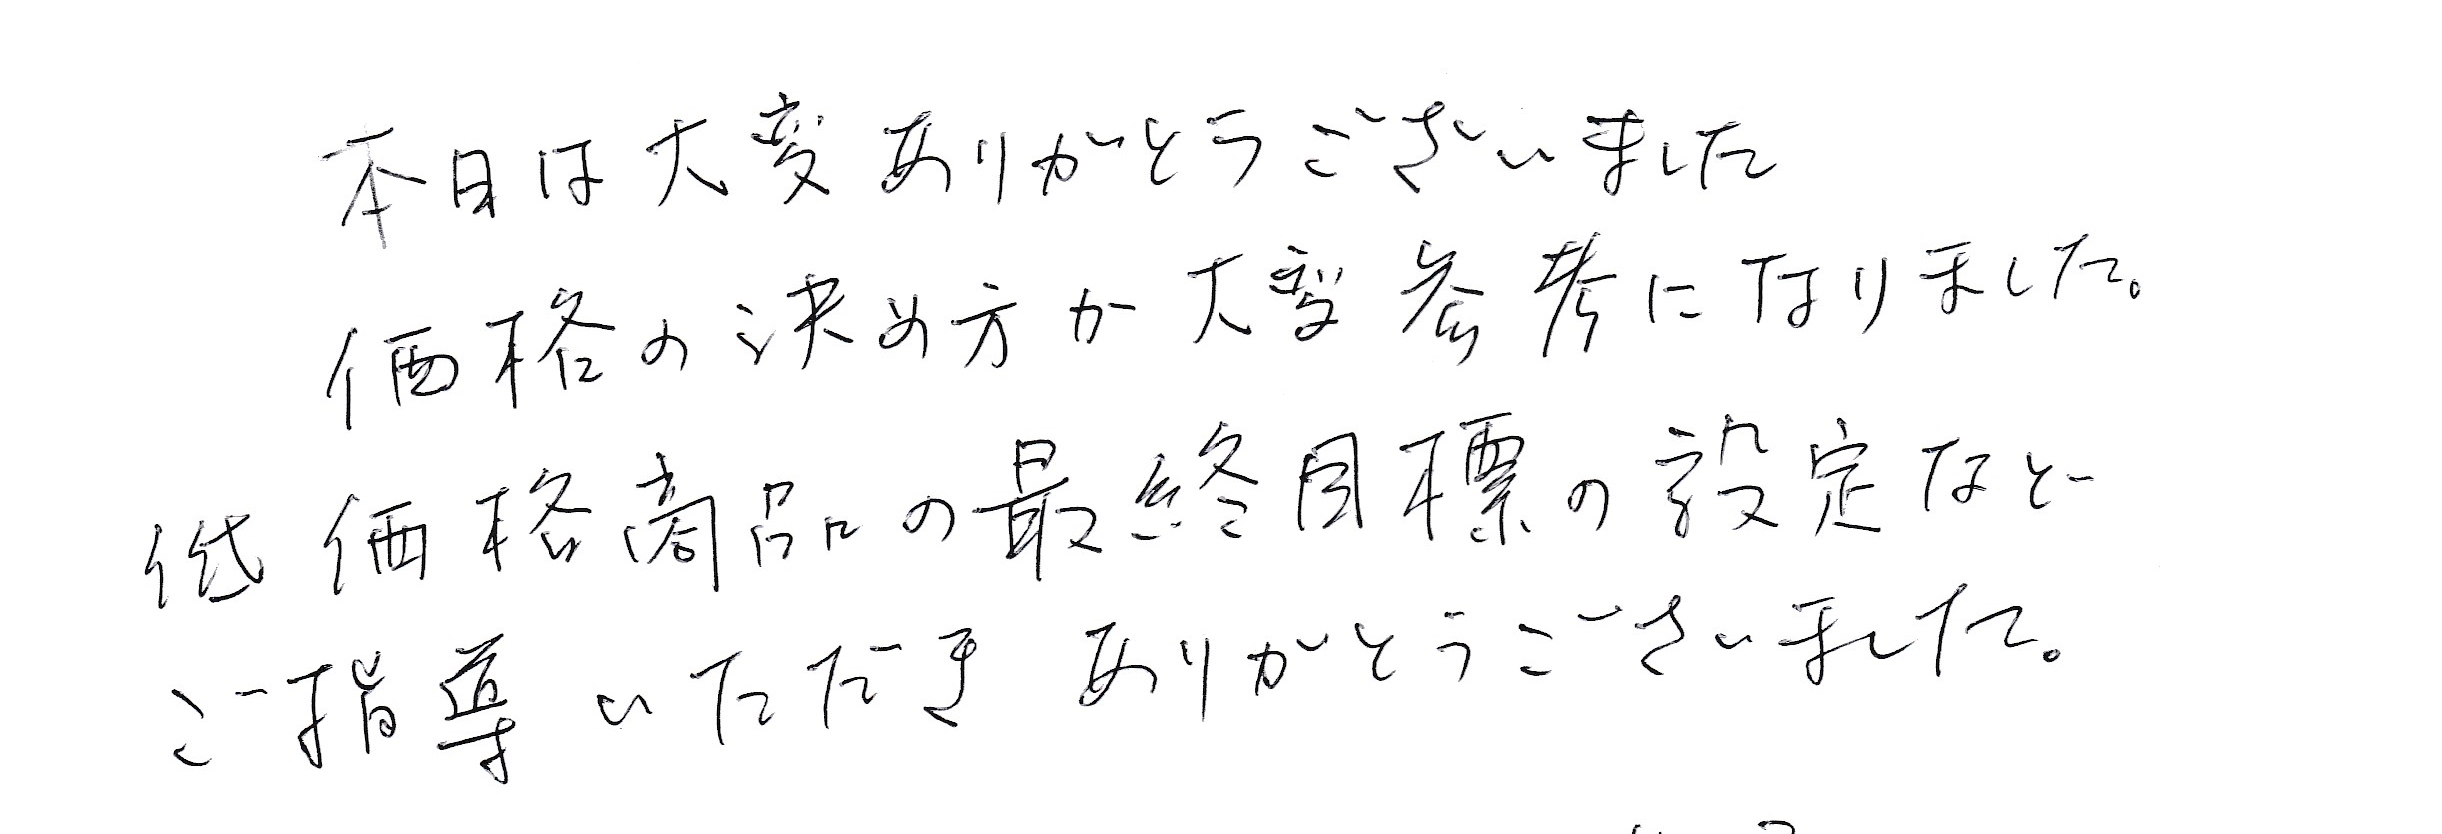 本日は大変ありがとうございました
価格の決め方が大変参考になりました。
低価格商品の最終目標の設定など
ご指導いただきありがとうございました。